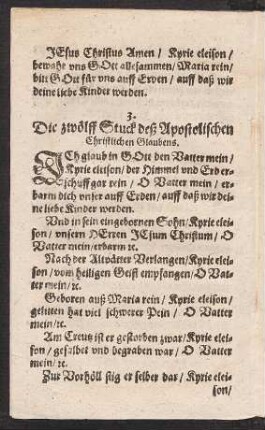 JEsus Christus Amen / Kyrie eleison /
bewahr vns GOtt allesammen / Maria rein /
bitt GOtt für vns auff Erden / auff daß wir
deine liebe Kinder werden.
3.
Die zwölff Stuck deß Apostolischen
Christlichen Glaubens.
ICh glaub in GOtt den Vatter mein /
Kyrie eleison / der Himmel vnd Erd er-
schuff gar rein / O Vatter mein / er-
barm dich vnser auff Erden / auff daß wir dei-
ne liebe Kinder werden.
Vnd in sein eingebornen Sohn / Kyrie elei-
son / vnsern HErren JEsum Christum / O
Vatter mein / erbarm ꝛc.
Nach der Altvätter Verlangen / Kyrie elei-
son / vom heiligen Geist empfangen / O Vat-
ter mein / ꝛc.
Geboren auß Maria rein / Kyrie eleison /
gelitten hat viel schwerer Pein / O Vatter
mein / ꝛc.
Am Creutz ist er gestorben zwar / Kyrie elei-
son / gesalbet vnd begraben war / O Vatter
mein / ꝛc.
Zur Vorhöll stig er selber dar / Kyrie elei-
son /